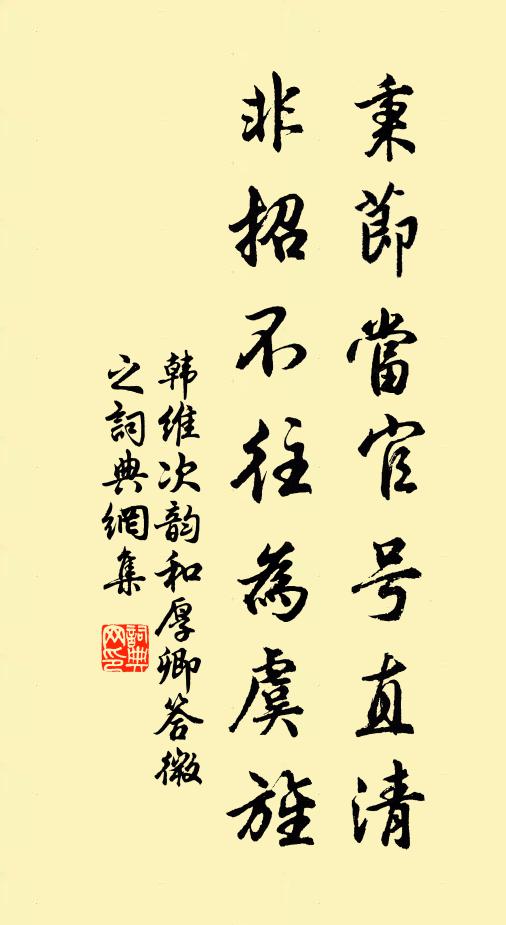 秉節當官号直清
非招不往為虞旌
韩維次韵和厚卿答微
之詞典網集
詞典
网印